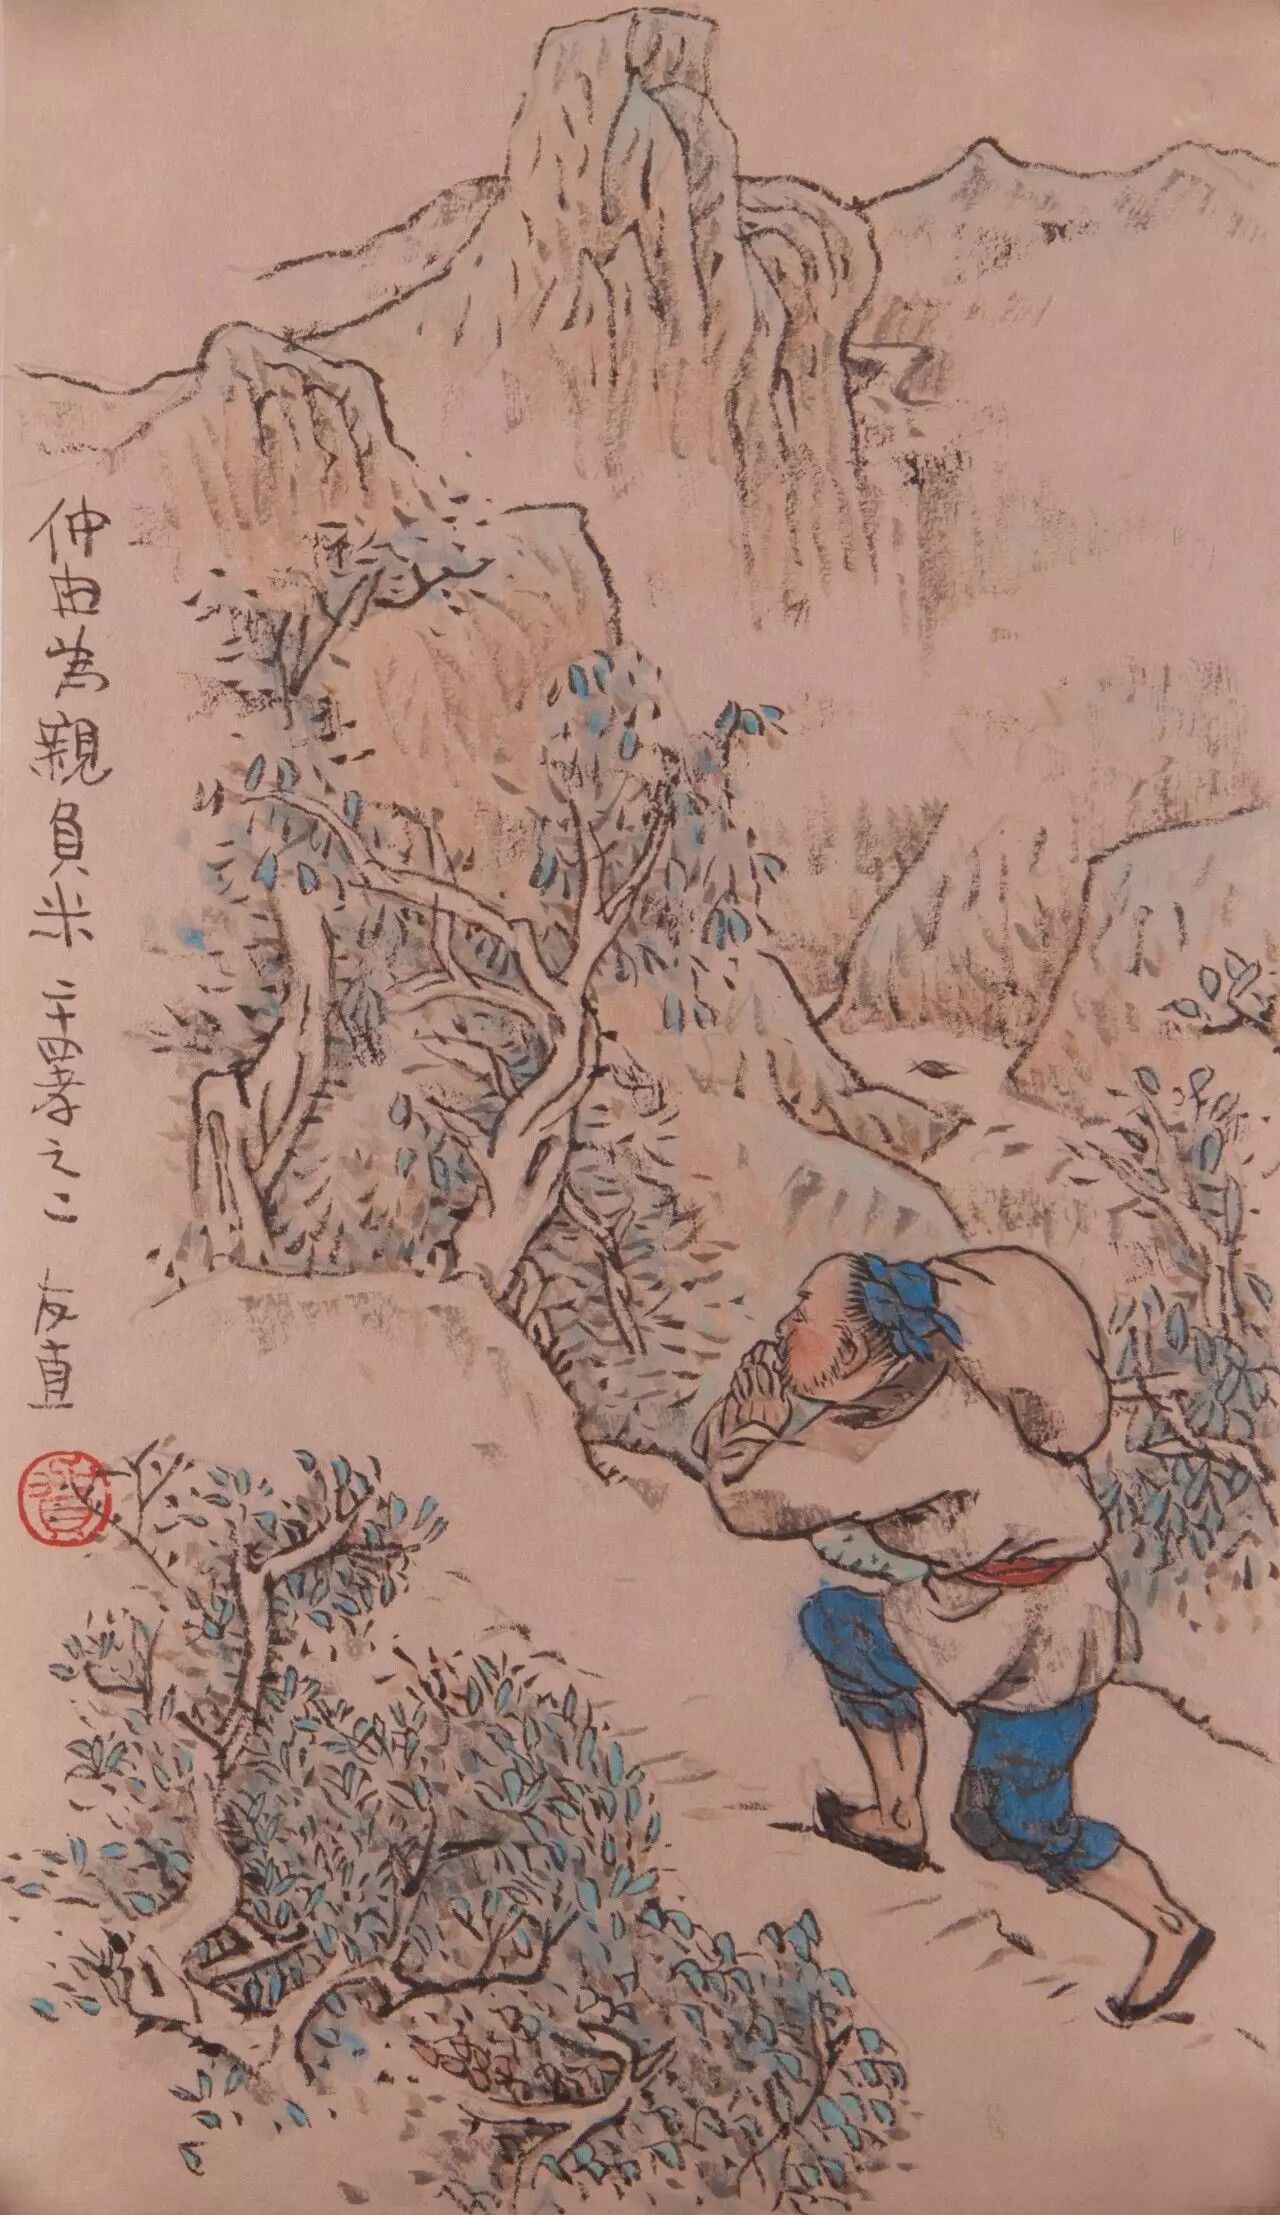 仲由為親負米 二十四孝之二 友直